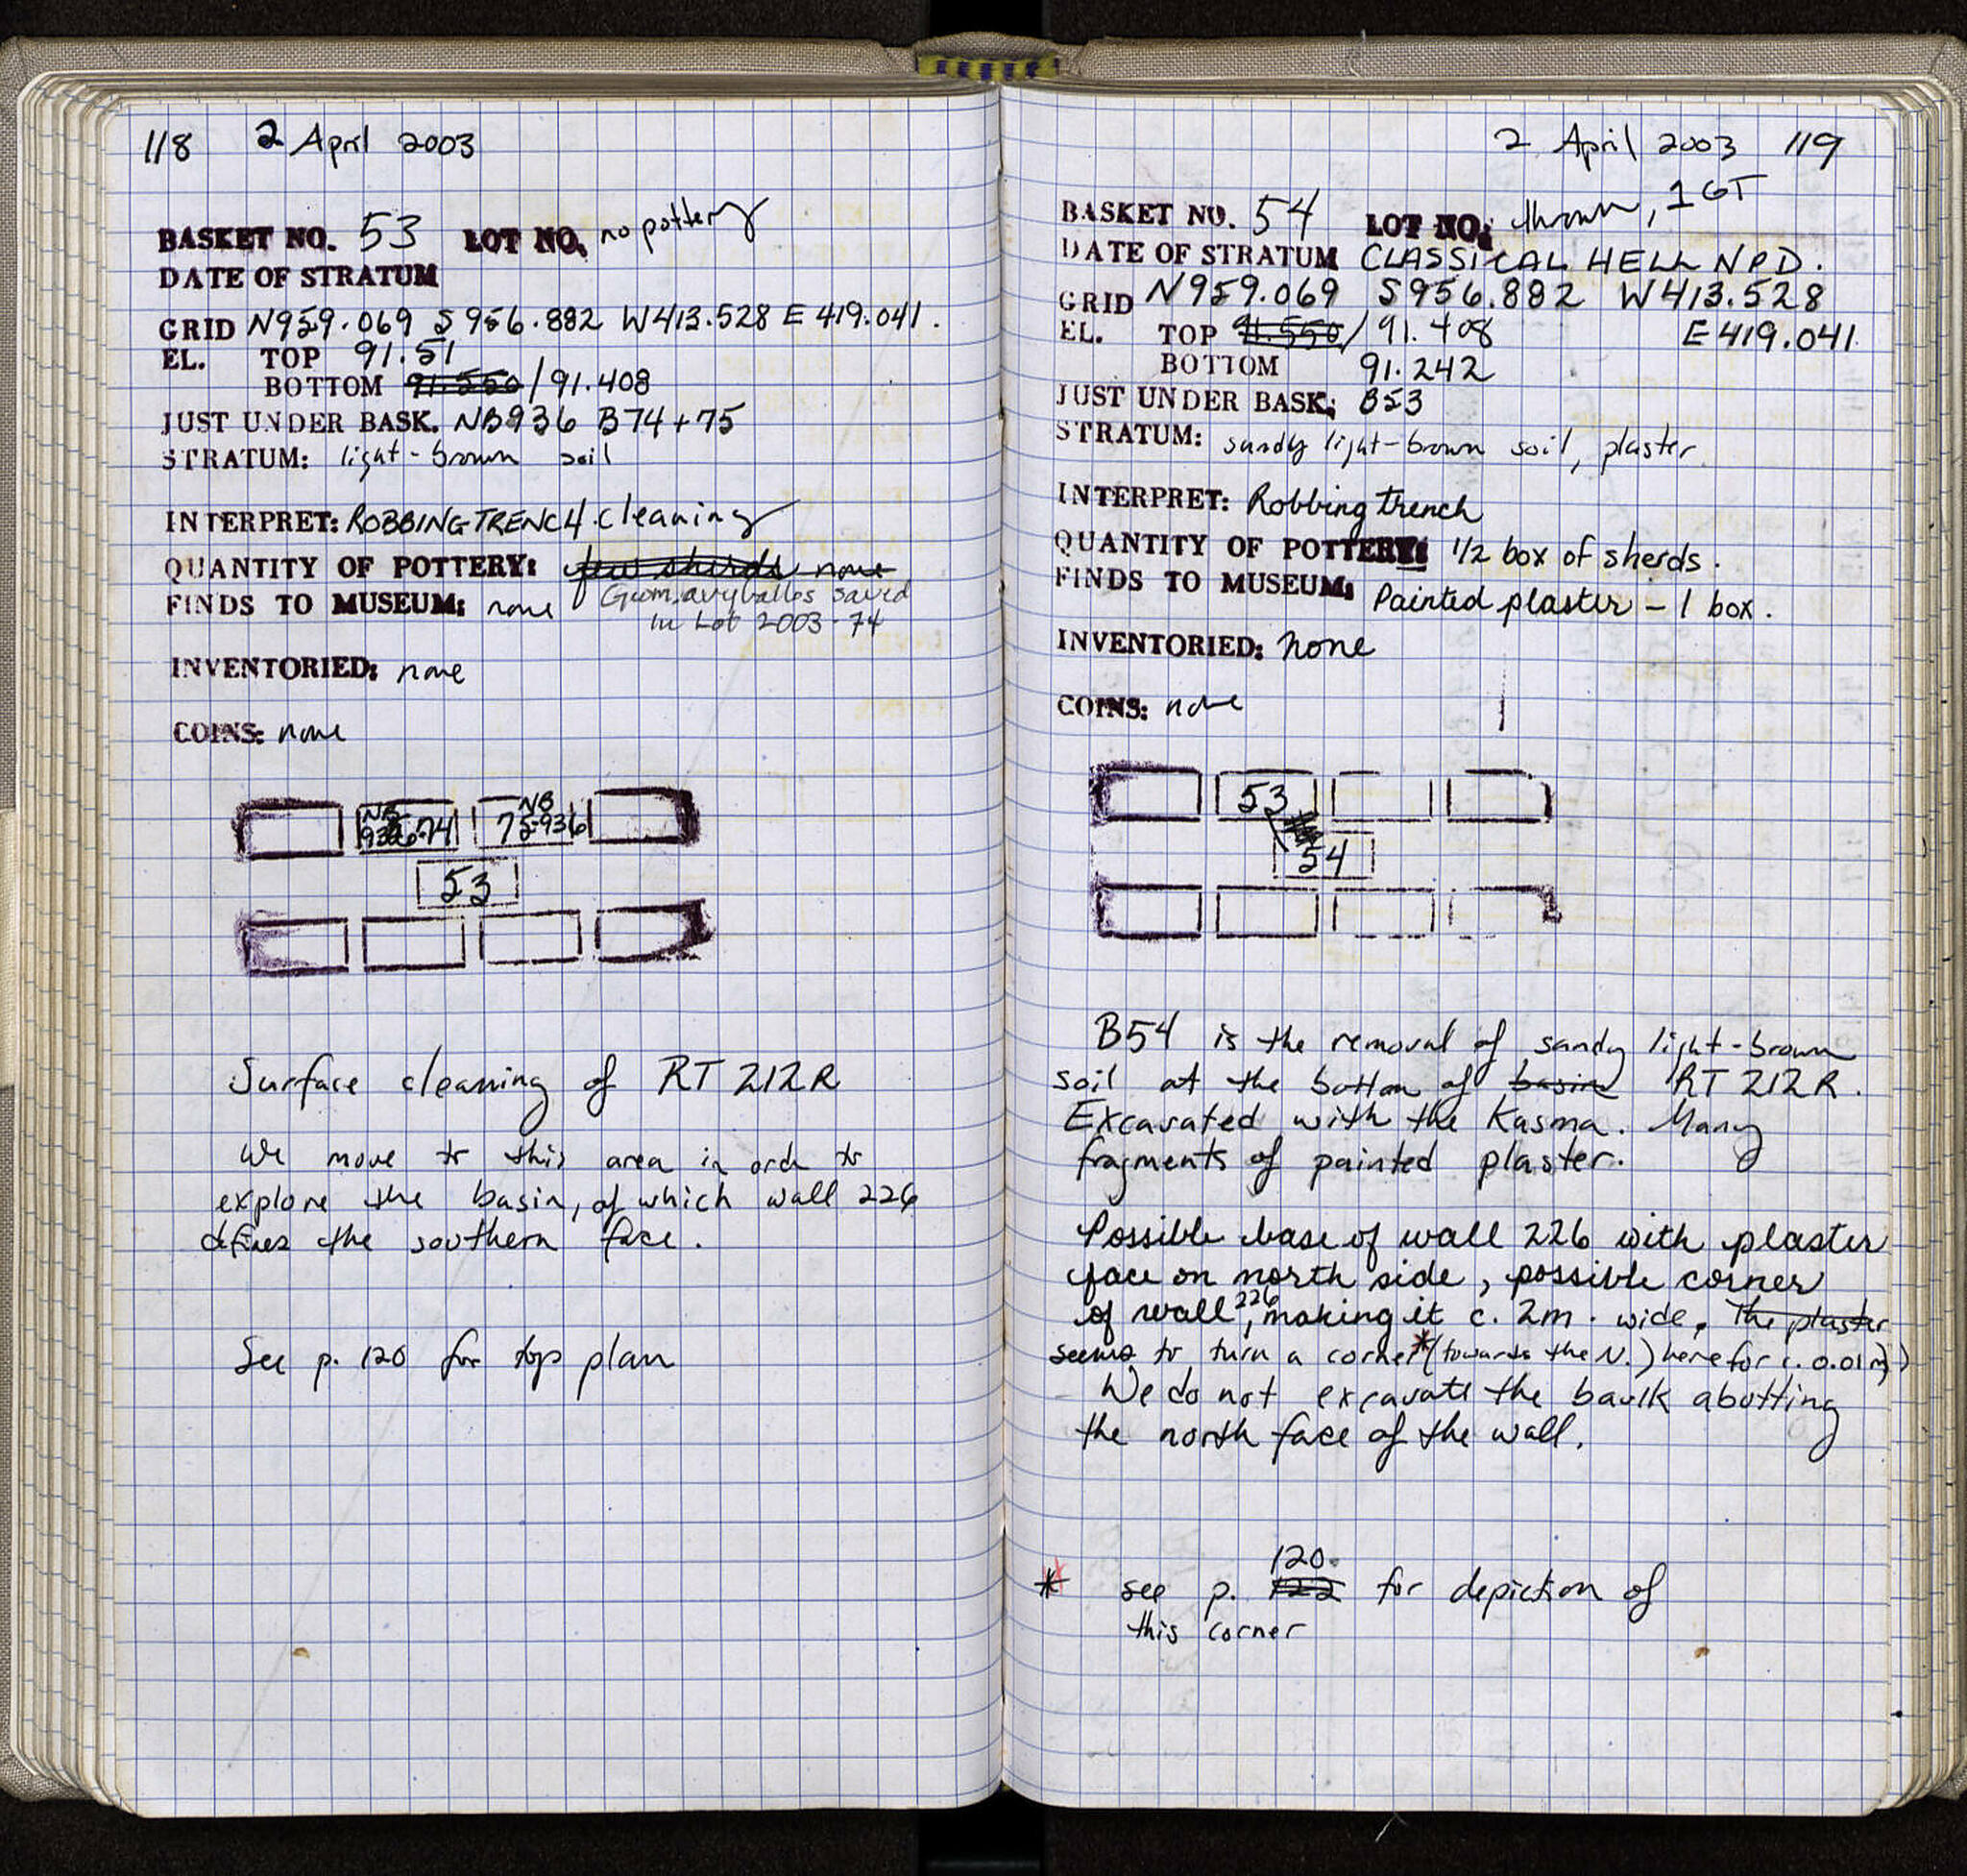 118 2 April 2003
BASKET NO. 53 LOT NO. no pottery
DATE OF STRATUM
GRID N959.069 S956.882 W413.528 E419.041.
EL. TOP 91.51
BOTTOM 91.550/91.408
JUST UNDER BASK. NB936 B74+75
STRATUM: light-brown soil
INTERPRET: ROBBING TRENCH cleaning
QUANTITY OF POTTERY: few sherds none
FINDS TO MUSEUM: none saved
in Lot 2003-74
INVENTORIED: none
COINS: none
NB NB
936-74 75-936
53
Surface cleaning of RT 212R
We move to this area in order to
explore the basin, of which wall 226
defines the southern face.
See p. 120 for top plan
2 April 2003 119
BASKET NO. 54 LOT NO: thrown, 1GT
DATE OF STRATUM CLASSICAL HELL NPD.
GRID N959.069 S956.882 W413.528
EL. TOP 91.550/91.408 E419.041
BOTTOM 91.242
JUST UNDER BASK: B53
STRATUM: sandy light-brown soil, plaster
INTERPRET: Robbing trench
QUANTITY OF POTTERY: 1/2 box of sherds.
FINDS TO MUSEUM: Painted plaster - 1 box.
INVENTORIED: none
COINS: none
53
54
B54 is the removal of sandy light-brown
soil at the bottom of basin RT 212R.
Excavated with the Kasma. Many
fragments of painted plaster.
Possible base of wall 226 with plaster
face on north side, possible corner
of wall 226, making it c. 2m. wide. The plaster
seems to turn a corner* (towards the N.) here for c. 0.01m)
We do not excavate the baulk abutting
the north face of the wall.
120.
* see p. 122 for depiction of
this corner